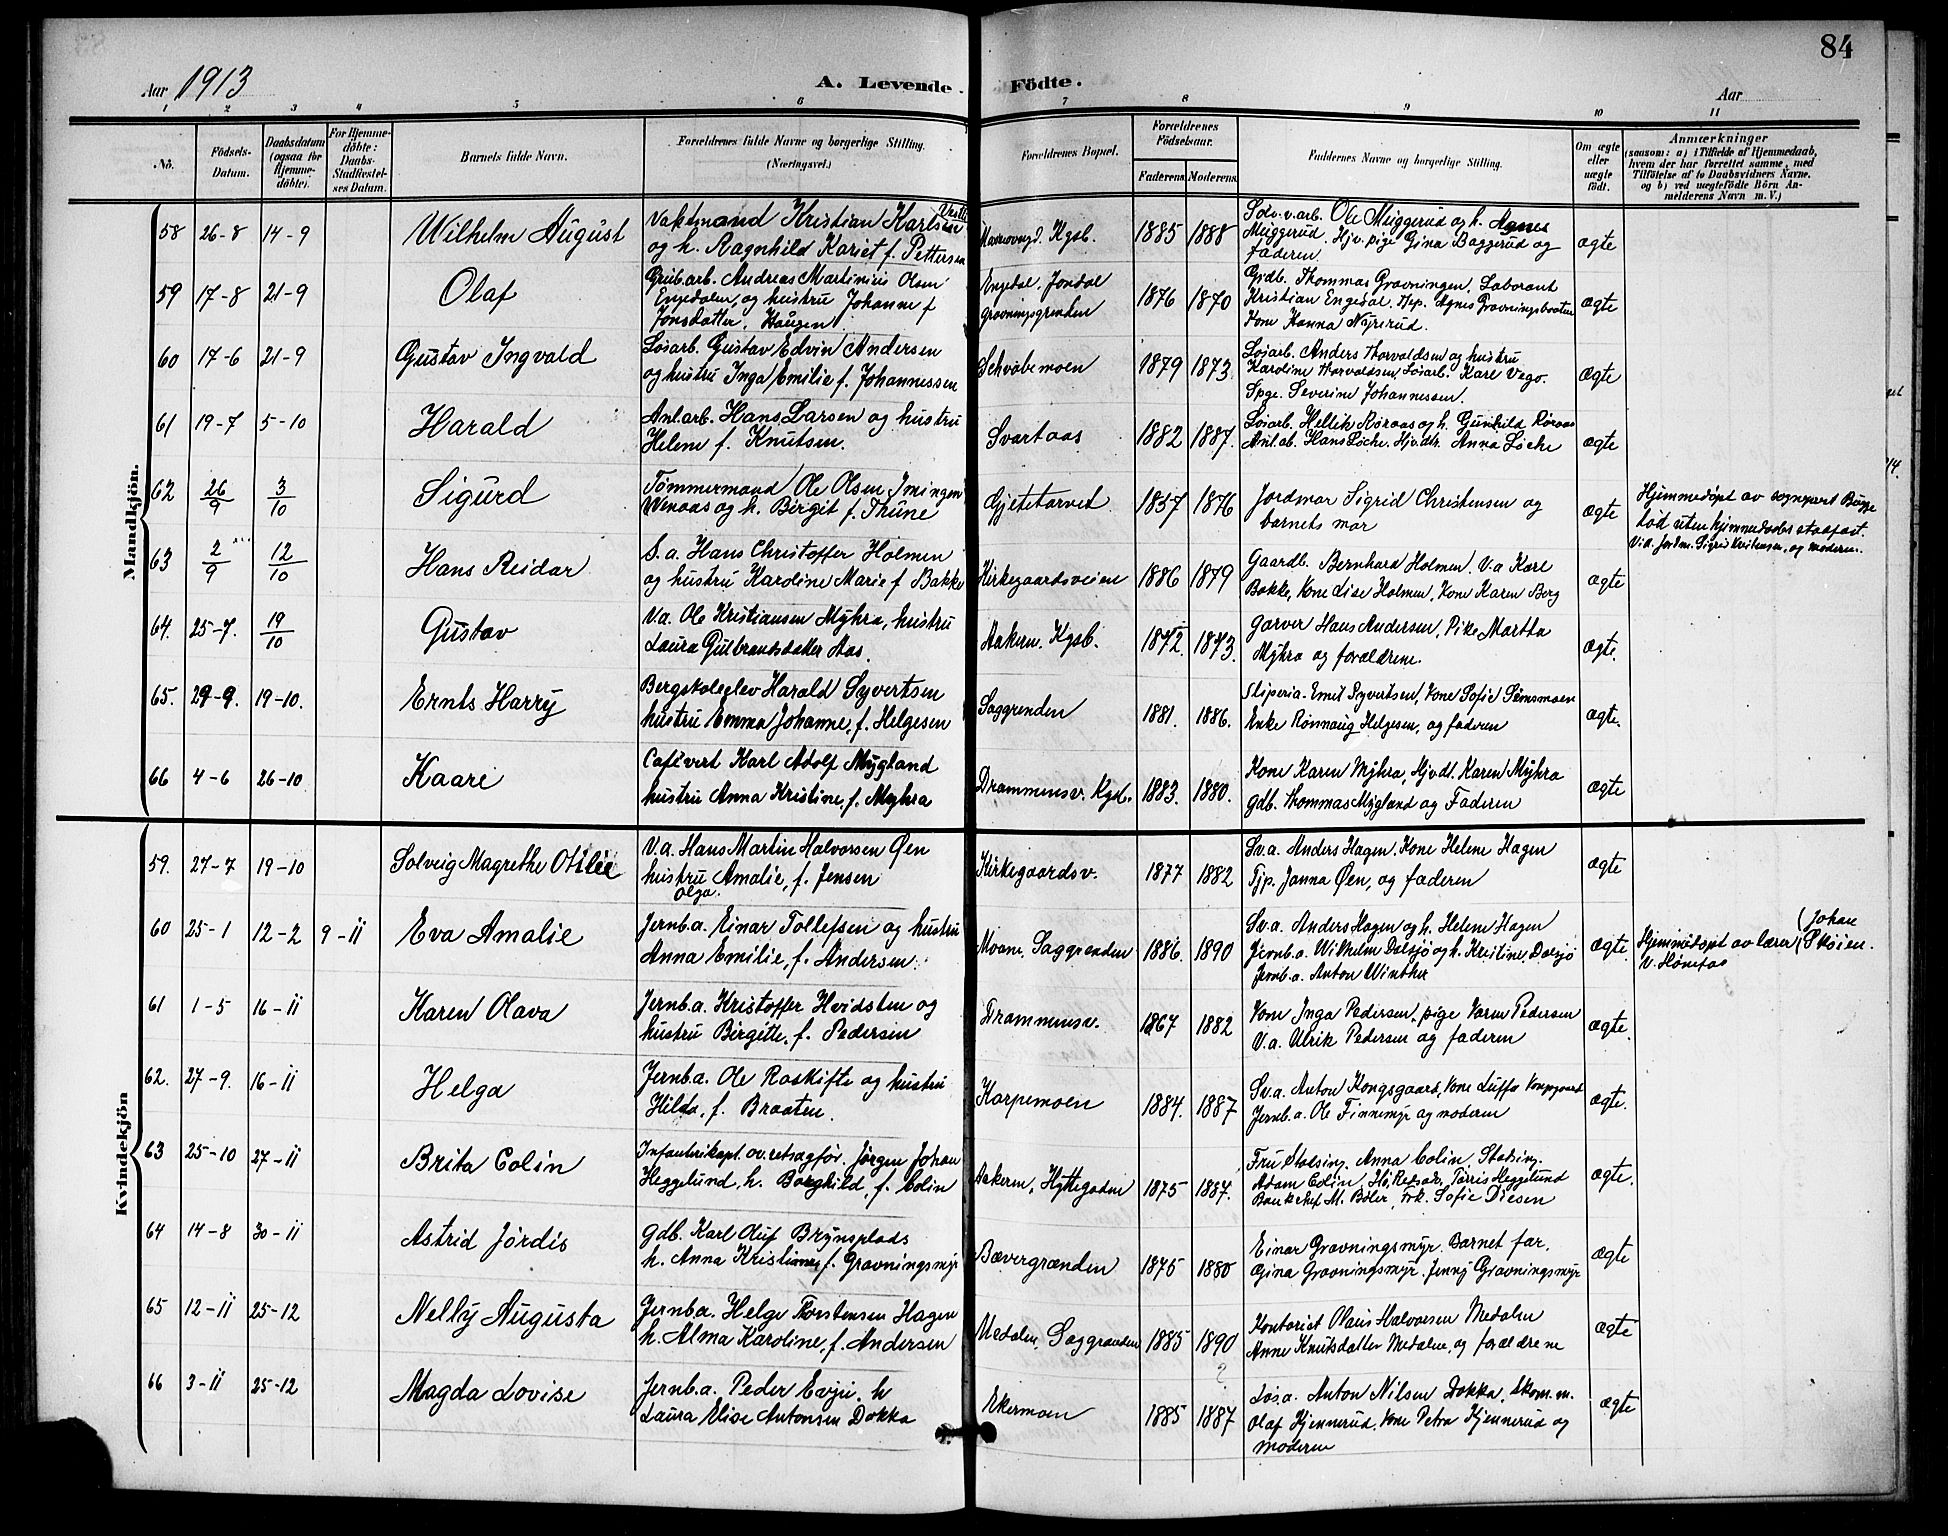 84
Aar 1913
A. Levende
Födte.
Aar
1 2 3 4 5 6 7 8 9 10 11
No.
Födsels-Datum.
Daabsdatum (ogsaa for Hjemmedöbte).
For Hjemmedöbte: Daabs-Stadfæstelses Datum.
Barnets fulde Navn.
Forældrenes fulde Navne og borgerlige Stilling. (Næringsvei.)
Forældrenes Bopæl.
Forældrenes Födselsaar.
Faderens. Moderens.
Faddernes Navne og borgerlige Stilling.
Om ægte eller uægte födt.
Anmærkninger
(saasom: a) i Tilfælde af Hjemmedaab, hvem der har forrettet samme, med Tilföielse af to Daabsvidners Navne, og b) ved uægtefödte Börn Anmelderens Navn m. V.)
Mandkjön.
58 26-8 14-9 Wilhelm August
Vaktmand Kristian Karlsen
og h. Ragnhild Kariet f. Pettersen
Kgsb. 1885 1888
Sølv.v.arb. Ole Muggerud og h. Agnes
Muggerud. Hjv. pige Gina Baggerud og
faderen.
ægte
59 17-8 21-9 Olaf
Grub.arb. Andreas Martinius Olsen
Engedalen, og hustru Johanne f
Jonsdatter, Haugen
Engedal, Jondal
Gravningsgrenden
1876 1870
Grdb. Thommas Gravningen, Laborant
Kristian Engedal. Agnes Gravningsbraaten
Kone Hanna Nyrerud.
ægte
60 17-6 21-9 Gustav Ingvald
Løsarb. Gustav Edvin Andersen
og hustru Inga Emilie f. Johannessen
Schvabemoen
1879 1873.
Løsarb. Anders Thorvaldsen og hustru
Karoline Thorvaldsen, Løsarb. Karl Vego.
Spge. Severine Johannessen.
ægte
61 19-7 5-10 Harald
Anl.arb. Hans Larsen og hustru
Helene f. Knutsen.
Svartaas
1882 1887.
Løsarb. Hellik Røraas og h. Gunhild Røraas
Anl.ab. Hans Løche, Hjv.dtr. Anna Løche
ægte
62 26/9 3/10 Sigurd
Tømmermand Ole Olsen Imingen
Venaas og h. Birgit f. Thune
Gjetetorvet
1857 1876
Jordmor Sigrid Christensen og
barnets mor
ægte
Hjemmedøpt av sognprest Bugge
død uten hjemmedaabs stadfæst.
63 2/9 12/10 Hans Reidar
S.a. Hans Christoffer Holmen
og hustru Karoline Marie f Bakke
Kirkegaardsveien
1886 1879
Gaardb. Bernhard Holmen. V.a Karl
Bakke, Kone Lise Holmen, Kone Karen Berg
ægte
64. 25-7. 19/10 Gustav
V.a. Ole Kristiansen Myhra, hustru
Laura Gulbrandsdatter Aas.
Aakern. Kgsb.
1872. 1873.
Garver Hans Andersen, Pike Martha
Myhra og forældrene.
ægte.
65. 29-9. 19-10. Ernts Harry
Bergskoleelev Harald Syvertsen
hustru Emma Johanne, f. Helgesen
Saggrenden
1881. 1886.
Sliperia. Emil Syvertsen, Kone Sofie Semsmoen
Enke Rønnaug Helgesen, og faderen
ægte.
66 4-6 26-10 Kaare
Cafévert Karl Adolf Mygland
hustru Anna Kristine, f. Myhra
Drammensv. Kgsb.
1883. 1880.
Kone Karen Myhra, Hjvdt. Karen Myhra
gdb. Thommas Mygland og Faderen
ægte
Kvindekjön
59. 27-7 19-10 Solveig Magrethe Otilie
V.a. Hans Martin Halvorsen Øen
hustru Amalie, f. Jensen
Olga.
Kirkegaardsv.
1877 1882
Sv.a. Anders Hagen, Kone Helene Hagen
Tjp. Janna Øen, og faderen
ægte
60 25-1 12-2 9-11 Eva Amalie
Jernb.a. Einar Tollefsen og hustru
Anna Emilie, f. Andersen
Moane, Saggrenden
1886. 1890
Sv.a. Anders Hagen og h. Helene Hagen
Jernb.a. Wilhelm Dalsjø og h. Kristine Dalsjø
Jernb.a. Anton Winther
ægte.
Hjemmedøpt av lærer (Johan Skøien.
V. Hønefos
61 1-5 16-11 Karen Olava
Jernb.a. Kristoffer Hvidsten og
hustru Birgitte, f. Pedersen
Drammensv.
1867 1882
Kone Inga Pedersen, pige Karen Pedersen
V.a. Ulrik Pedersen og faderen
ægte.
62. 27-9. 16-11 Helga
Jernb.a. Ole Roskifte og hustru
Hilda, f. Braaten.
Korpemoen
1884. 1887
Sv.a. Anton Kongsgaard, Kone Luffa Kongsgaard
Jernb.a. Ole Finnemyr og moderen
ægte.
63 25-10 27-11 Brita Colin
Infanterikapt. ov.retsagfør. Jørgen Johan
Heggelund, h. Borghild, f. Colin
Aakern, Hyttegaden
1875 1887.
Fru Stolsing. Anna Colin, Stolsing.
Adam Colin, Torris Heggelund
Bankchef M. Bøler, frk. Sofie Diesen
ægte.
64 14-8 30-11 Astrid Jørdis
Gdb. Karl Oluf Brynsplads
h. Anna Kristiane, f. Gravningsmyr
Bævergrænden
1875 1880
Einar Gravningsmyr. Barnet far.
Gina Gravningsmyr. Jenny Gravningsmyr
ægte
65 12-11 25-12 Nelly Augusta
Jernb.a. Helge Torstensen Hagen
h. Alma Karoline, f. Andersen
Medalen, Saggrænden
1885 1890
2
Kontorist Olaus Halvorsen Medalen
Anne Knutsdatter Medalen, og forældrene
ægte
66 3-11 25-12 Magda Lovise
Jernb.a. Peder Evju, h
Laura Elise Antonsen Dokka
Ekermoen
1885 1887
Løs.a. Anton Nilsen Dokka, Skom.m.
Olaf Hjennerud, Kone Petra Hjennerud og
moderen
ægte